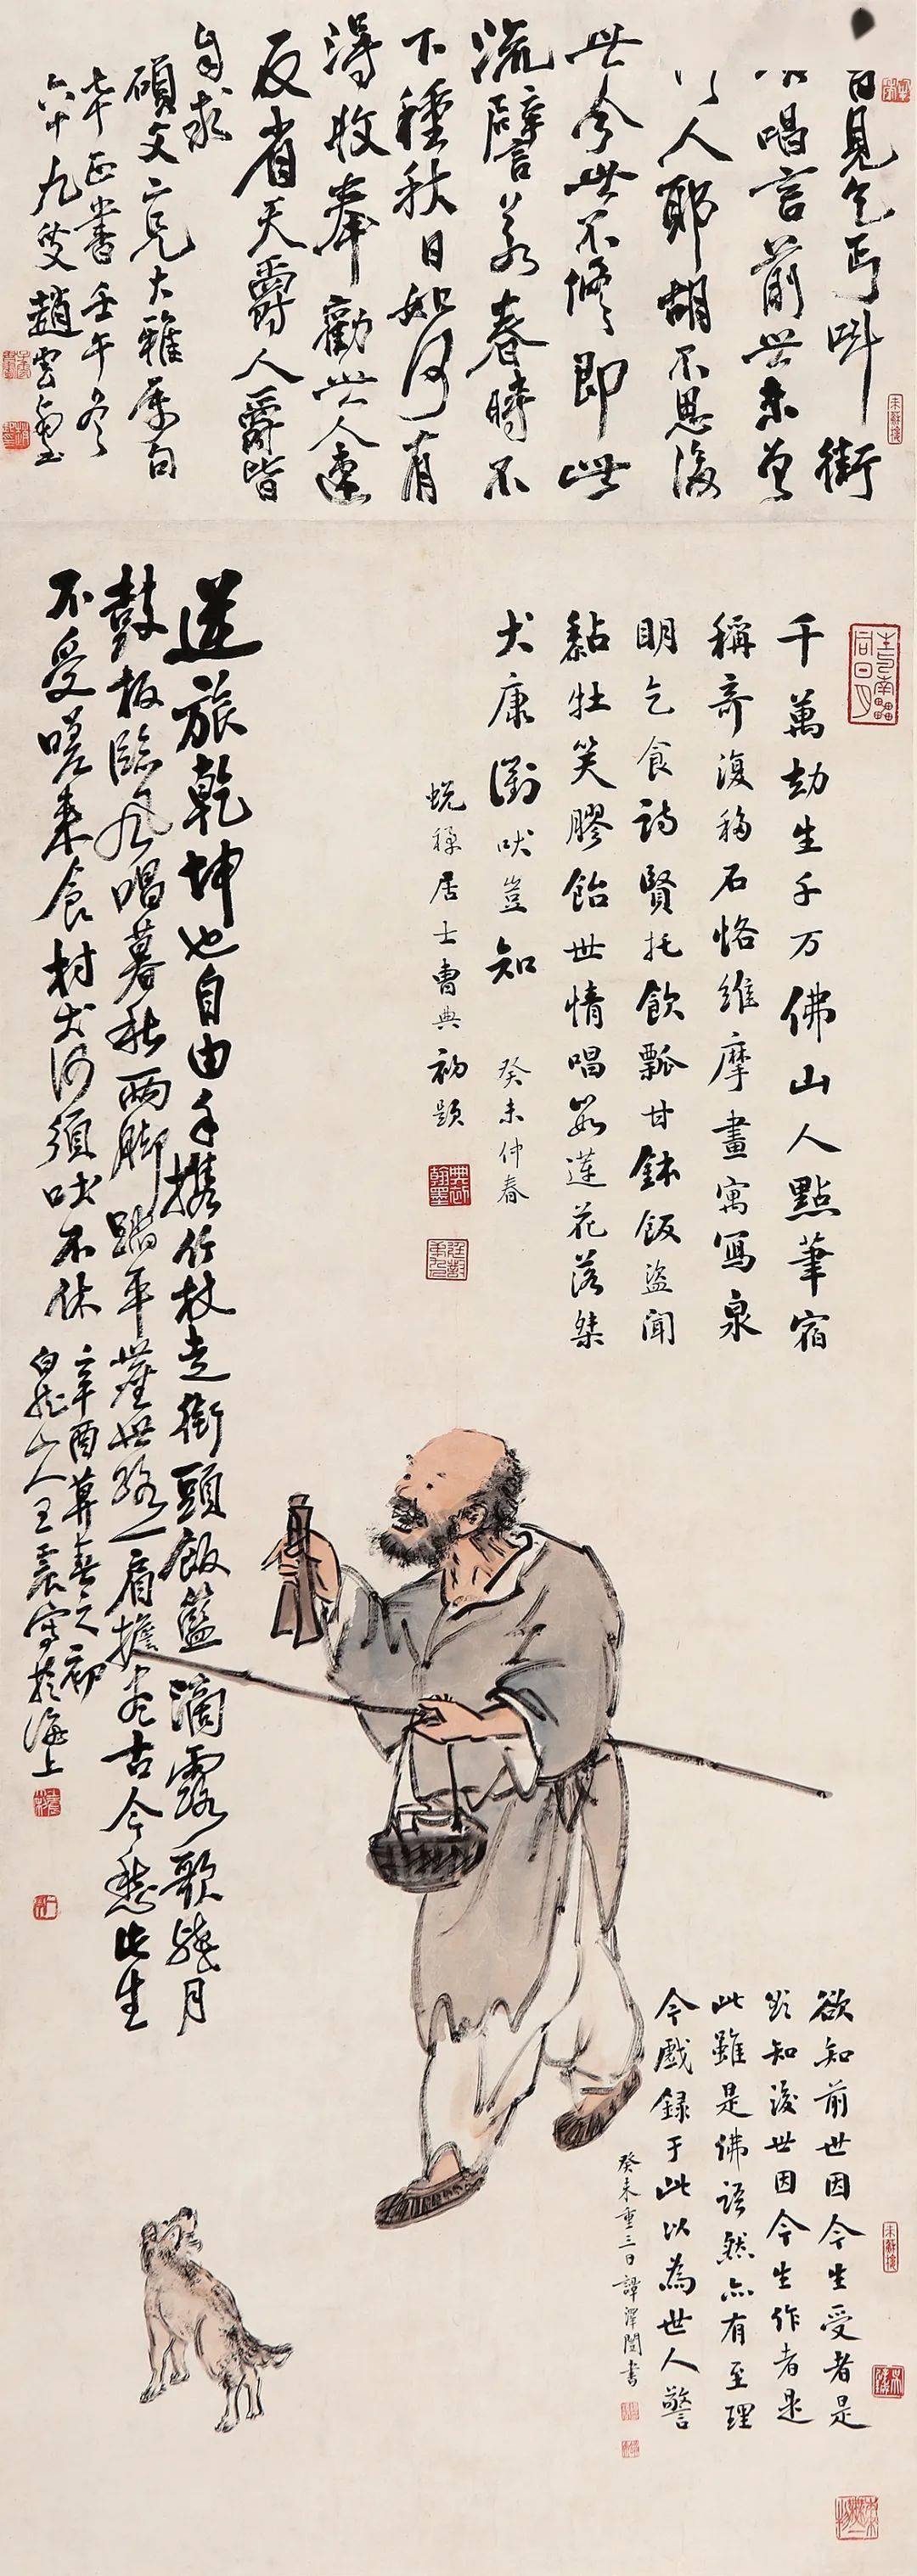 日見乞丐叫街
唱言前世未曾
人耶胡不思後
世今世不修即此
流譬若春時不
下種秋日如何有
得收奉勸世人速
反省天爵人爵皆
自求
碩文二兄大雅屬句
正書壬午冬
六十九叟趙雲壑
千萬劫生千万佛山人點筆宿
稱奇復移石恪維摩畫寓寫泉
明乞食詩賢托飲瓢甘鉢飯盜聞
黏牡笑膠飴世情唱敩蓮花落桀
犬康衢吠豈知 癸未仲春
蛻禪居士曹典初題
逆旅乾坤也自由手携竹杖走街頭飯籃滴露歌殘月
鼓板臨風唱暮秋兩脚踏平塵世路一肩擔盡古今愁此生
不受嗟來食村犬何須吠不休 辛酉
白龍山人王震寫於海上
欲知前世因今生受者是
欲知後世因今生作者是
此雖是佛語然亦有至理
今戲録于此以為世人警
癸未重三日譚澤闓書